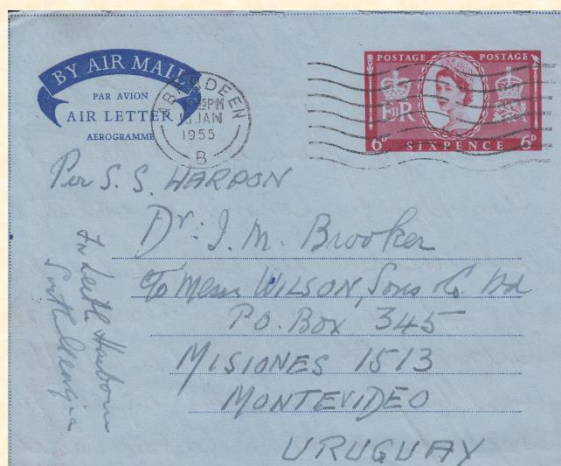 BY AIR MAIL
PAR AVION
AIR LETTER
AEROGRAMME
ABERDEEN
PM
JAN
1955
B
POSTAGE POSTAGE
E R
6D SIXPENCE 6D
Per S.S. HARPON
Dr. I. M. Brooker
To Messrs WILSON, Sons Co Ltd
P.O. Box 345
MISIONES 1513
MONTEVIDEO
URUGUAY
For Leith Harbour
South Georgia